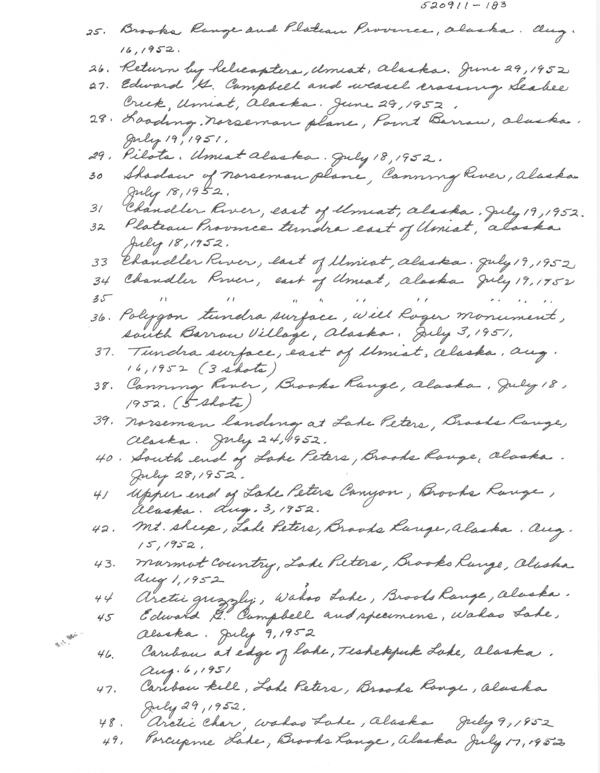 520911-183
25. Brooks Range and Plateau Province, Alaska. Aug.
16, 1952.
26. Return by helicoptera, Umiat, Alaska. June 29, 1952
27. Edward G. Campbell and weasel crossing Seabee
Creek, Umiat, Alaska. June 29, 1952.
28. Loading Norseman plane, Point Barrow, Alaska.
July 19, 1951.
29. Pilots. Umiat Alaska. July 18, 1952.
30 Shadow of Norseman plane, Canning River, Alaska
July 18, 1952.
31 Chandler River, east of Umiat, Alaska. July 19, 1952.
32 Plateau Province tundra east of Umiat, Alaska
July 18, 1952.
33 Chandler River, east of Umiat, Alaska. July 19, 1952
34 Chandler River, east of Umiat, Alaska July 19, 1952
35 " " " " " " " " "
36. Polygon tundra surface, Will Roger monument,
south Barrow Village, Alaska. July 3, 1951.
37. Tundra surface, east of Umiat, Alaska. Aug.
16, 1952 (3 shots)
38. Canning River, Brooks Range, Alaska. July 18,
1952. (5 shots)
39. Norseman landing at Lake Peters, Brooks Range,
Alaska. July 24, 1952.
40. South end of Lake Peters, Brooks Range, Alaska.
July 28, 1952.
41 Upper end of Lake Peters Canyon, Brooks Range,
Alaska. Aug. 3, 1952.
42. Mt. sheep, Lake Peters, Brooks Range, Alaska. Aug.
15, 1952.
43. Marmot Country, Lake Peters, Brooks Range, Alaska
Aug 1, 1952
44 Arctic grizzly, Wahoo Lake, Brooks Range, Alaska.
45 Edward G. Campbell and specimens, Wahoo Lake,
Alaska. July 9, 1952
46. Caribou at edge of lake, Teshekpuk Lake, Alaska.
Aug. 6, 1951
47. Caribou kill, Lake Peters, Brooks Range, Alaska
July 29, 1952.
48. Arctic Char, Wahoo Lake, Alaska July 9, 1952
49. Porcupine Lake, Brooks Range, Alaska July 17, 1952